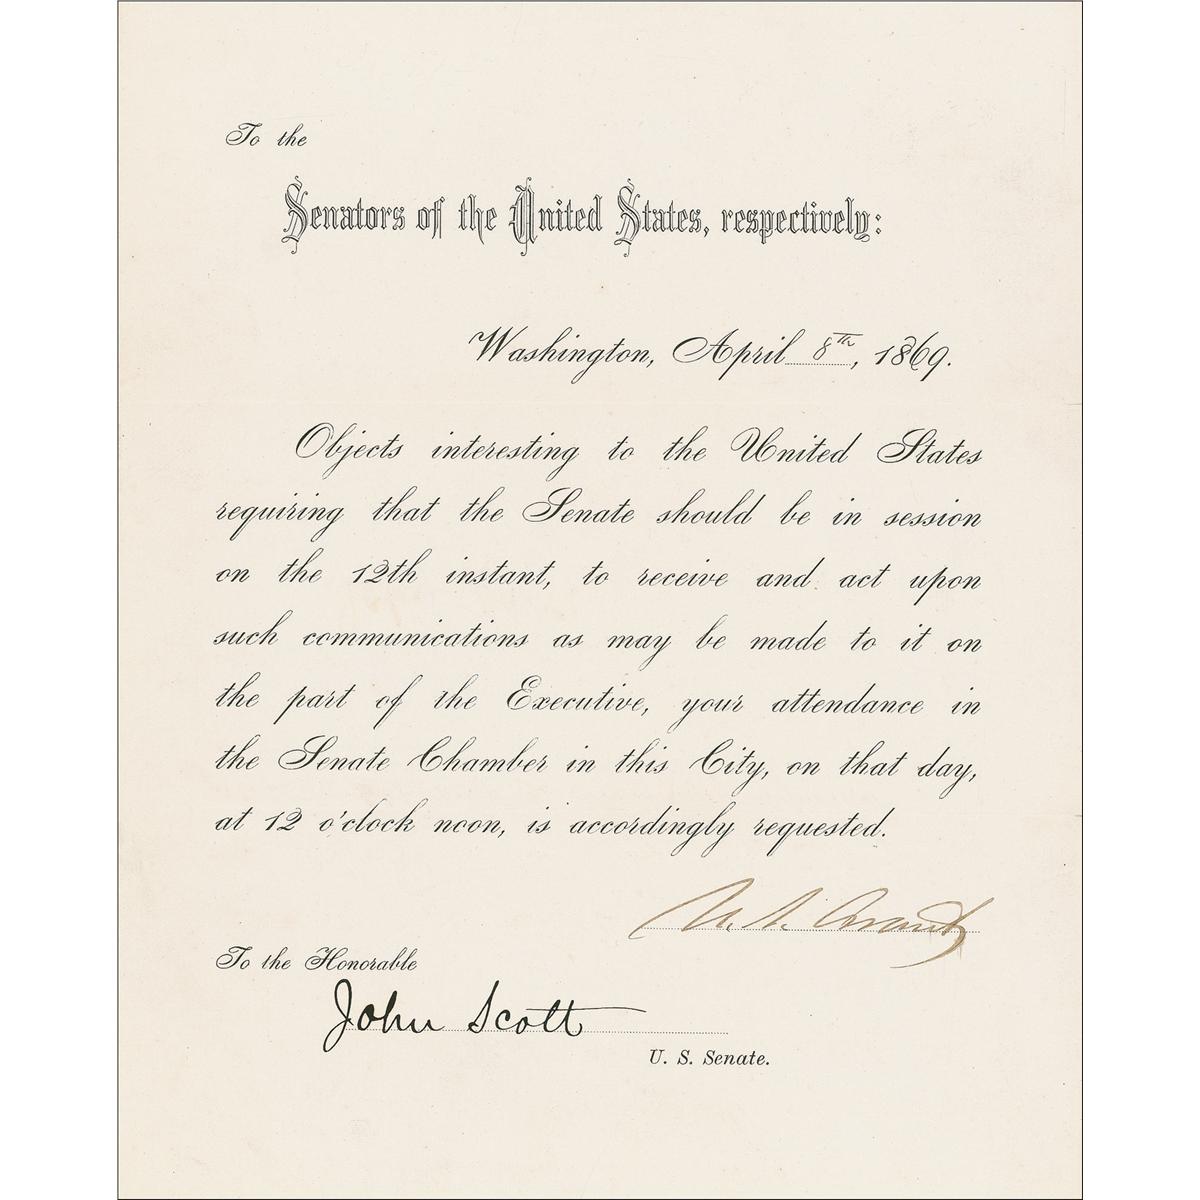 To the
Senators of the United States, respectively:
Washington, April 8th, 1869.
Objects interesting to the United States
requiring that the Senate should be in session
on the 12th instant, to receive and act upon
such communications as may be made to it on
the part of the Executive, your attendance in
the Senate Chamber in this City, on that day,
at 12 o'clock noon, is accordingly requested.
U. S. Grant
To the Honorable
John Scott
U. S. Senate.